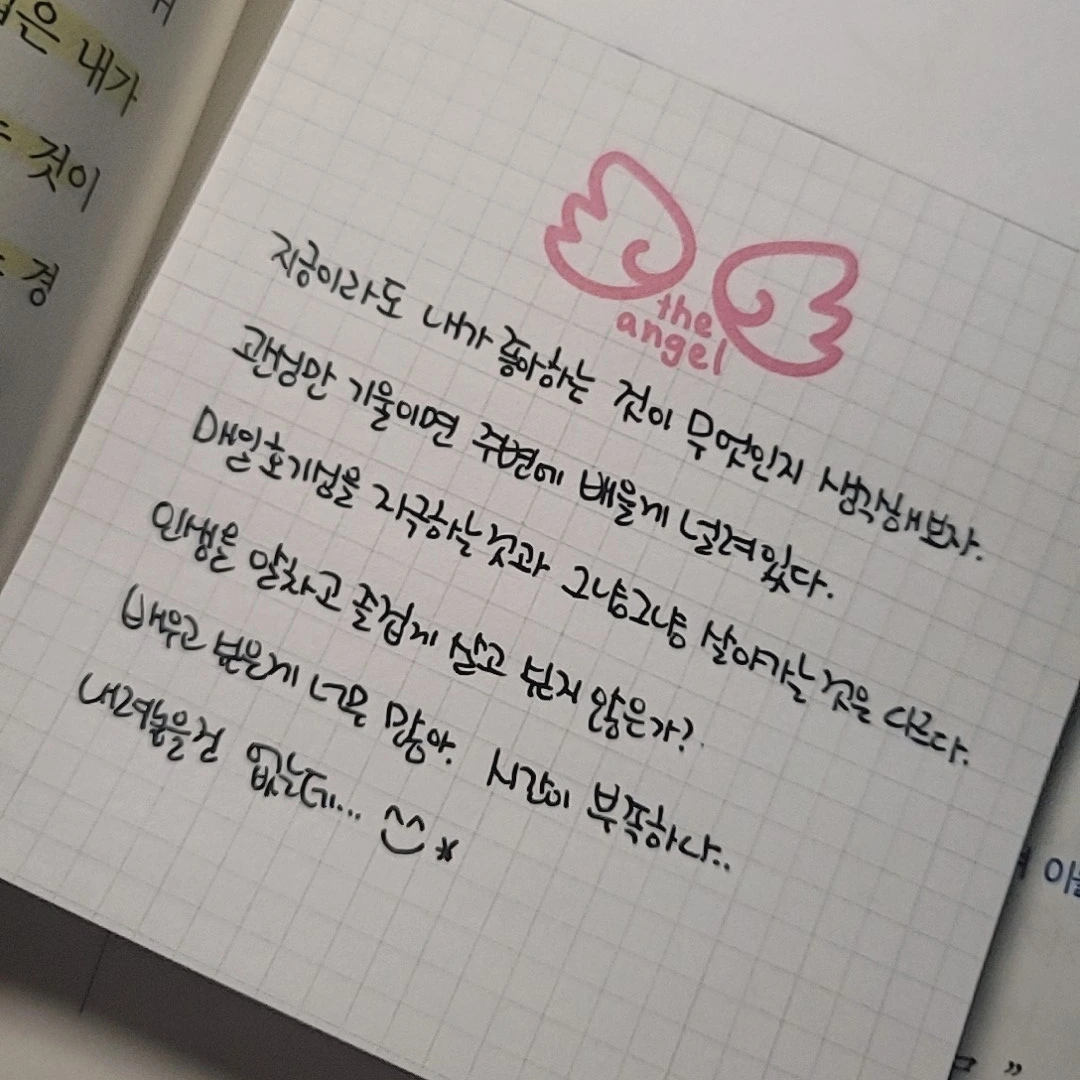 은 내가
것이
경
the
angel
지금이라도 내가 좋아하는 것이 무엇인지 생각해보자.
관심만 기울이면 주변에 배울게 널려있다.
매일 호기심을 자극하는것과 그냥그냥 살아가는것은 다르다.
인생을 알차고 즐겁게 살고 싶지 않은가?
배우고 싶은게 너무 많아. 시간이 부족하다..
내려놓을건 없는데... ^^